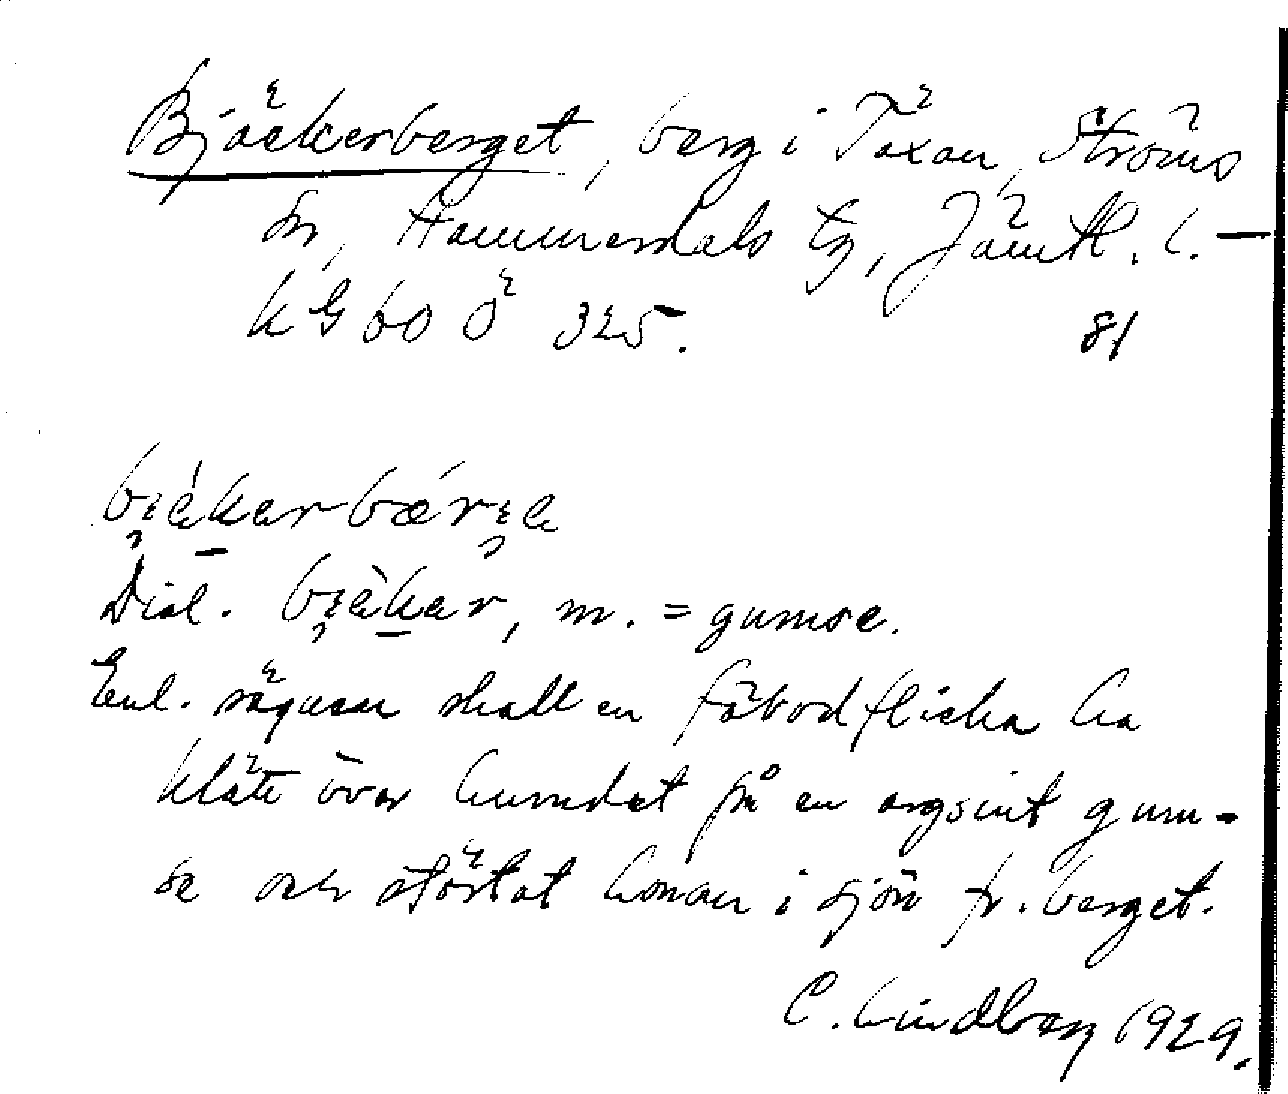 Bjäckerberget, berg i Täxan, Ströms
sn, Hammerdals tg, Jämtl. l. —
KG 60 Ö 325. 81
Dial. m. = gumse.
Enl. sägnen skall en fäbodflicka ha
klätt över huvudet på en argsint gum-
se och störtat honom i sjön fr. berget.
C. Lindberg 1929.